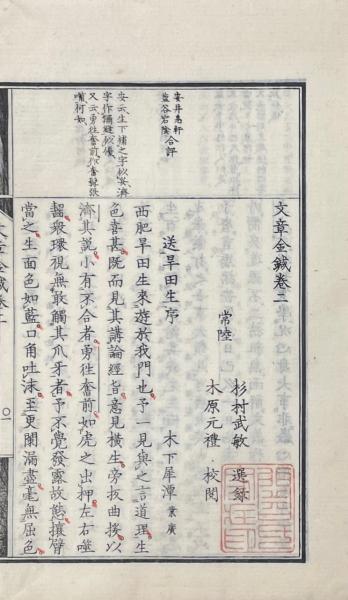 安井息軒
塩谷宕陰 合評
安云生下補之字似妥濟
字作彌縫似優
又云勇往奮前作奮髯張
嘴何如
文章金鍼卷二
常陸 杉村武敏 選録
木原元禮 校閲
送旱田生序
木下犀潭 業廣
西肥旱田生來遊於我門也予一見與之言道理生
色喜甚既而見其講論經旨意見橫生旁扳曲挨以
濟其說小有不合者勇往奮前如虎之出押左右噬
齧衆環視無敢觸其爪牙者予不覺發露故態攘臂
當之生面色如藍口角吐沫至更闌漏盡毫無屈色
文章金鍼卷二
一